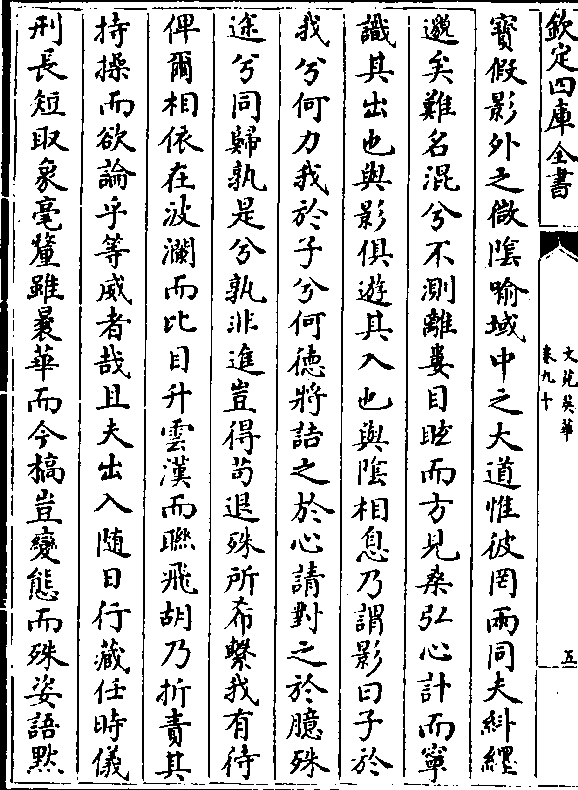 欽定四庫全書
文苑英華
卷九十
五
寳假影外之微隂喻域中之大道惟彼罔兩同夫糾纆
邈矣難名混兮不測離婁目眙而方見桑弘心計而寧
識其出也與影俱遊其入也與隂相息乃謂影曰子於
我兮何力我於子兮何徳將詰之於心請對之於臆殊
途兮同歸孰是兮孰非進豈得苟退殊所希繄我有待
俾爾相依在波瀾而比目升雲漢而聮飛胡乃折責其
持操而欲論乎等威者哉且夫出入随日行藏任時儀
刑長短取象毫釐雖曩華而今槁豈變態而殊姿語黙